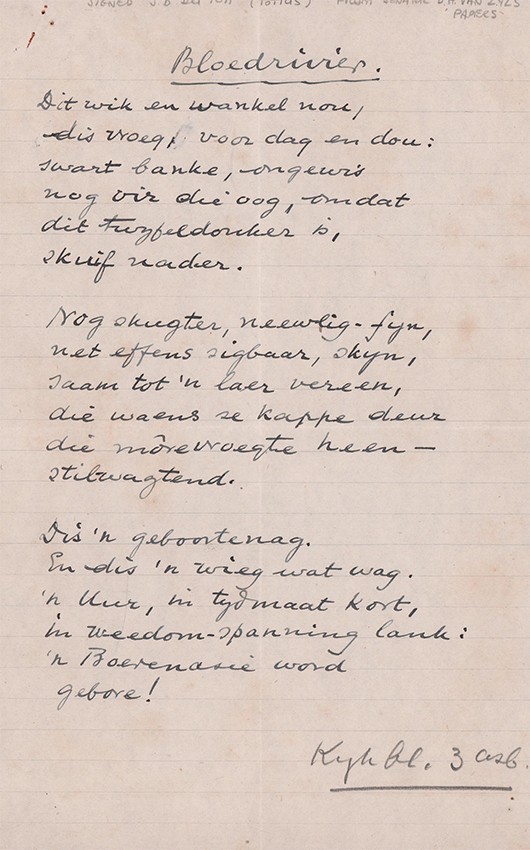 SIGNED J D DU TOIT (TOTIUS) FROM SENATOR D.H. VAN ZYL'S
'PAPERS'
Bloedrivier.
Dit wik en wankel nou,
dis vroeg, voor dag en dou:
swart banke, ongewis
nog vir die oog, omdat
dit twyfeldonker is,
skuif nader.
Nog skugter, neewlig-fyn,
net effens sigbaar, skyn,
saam tot 'n laer vereen,
die waens se kappe deur
die môrevroegte heen —
stilwagtend.
Dis 'n geboortenag.
En dis 'n wieg wat wag.
'n Uur, in tydmaat kort,
in weedom-spanning lank:
'n Boerenasie word
gebore!
Kyk bl. 3 asb.